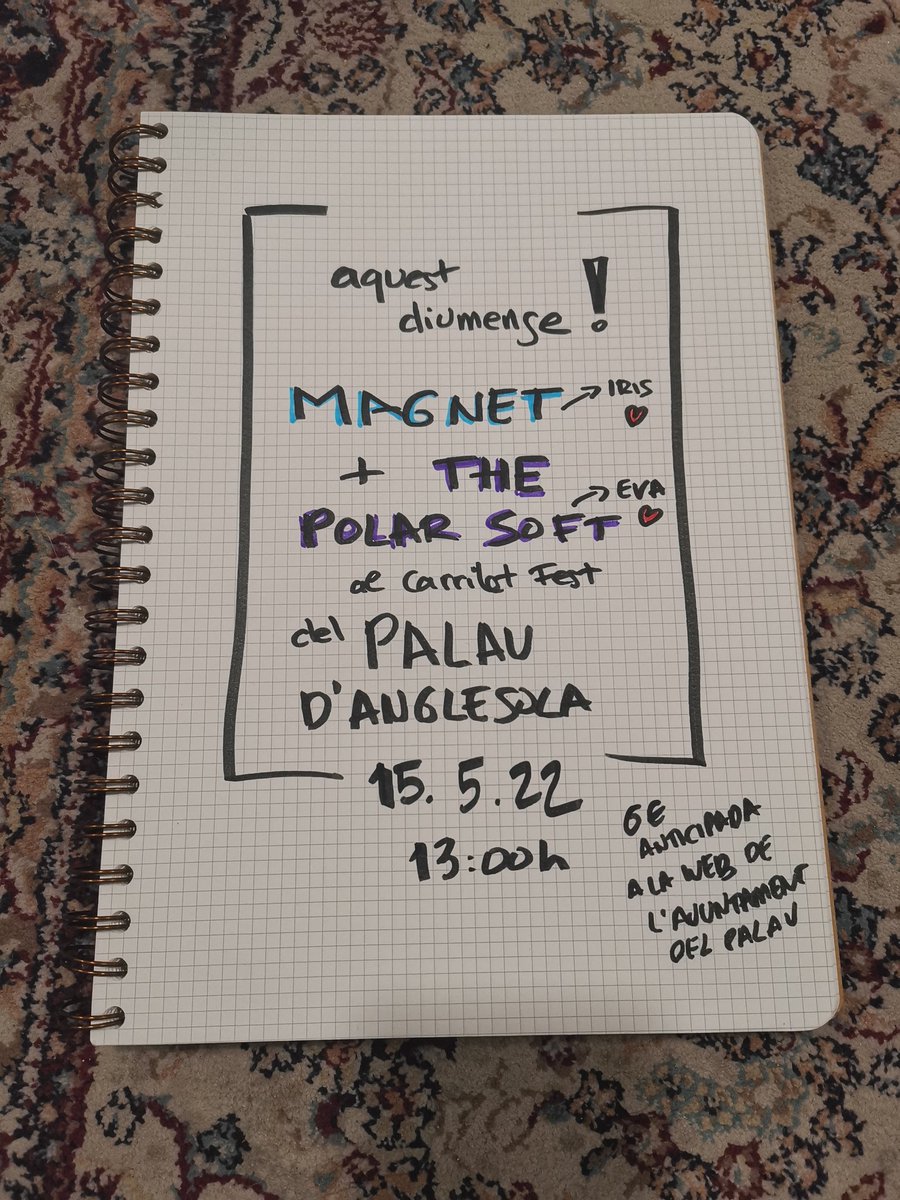 aquest
diumenge!
MAGNET → IRIS
+ THE
→ EVA
POLAR SOFT
al Carrilat Fest
del PALAU
D'ANGLESOLA
15.5.22
13:00h
6E
ANTICIPADA
A LA WEB DE
L'AJUNTAMENT
DEL PALAU